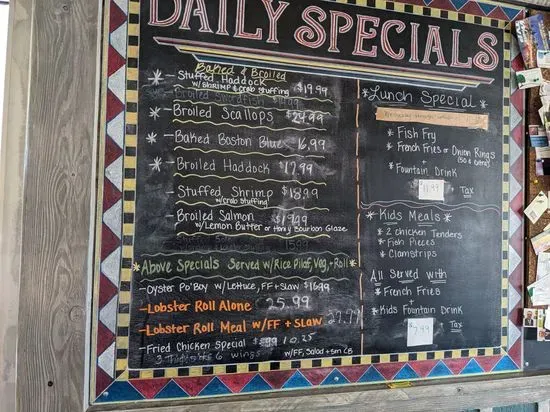 DAILY SPECIALS
Baked & Broiled
* - Stuffed Haddock $19.99
w/ SHRIMP & crab stuffing
Broiled Swordfish
* Broiled Scallops $24.99
* - Baked Boston Blue 16.99
- Broiled Haddock 17.99
- Stuffed Shrimp $18.99
w/crab stuffing
- Broiled Salmon
w/ Lemon Butter or Honey Bourbon Glaze
* Above Specials Served w/ Rice Pilaf, Veg, + Roll *
- Oyster Po'Boy w/ Lettuce, FF + SLAW $16.99
- Lobster Roll Alone 25.99
- Lobster Roll Meal w/FF + SLAW 27.99
- Fried Chicken Special 10.25
6 wings w/FF, Salad + Sm CB
* Lunch Special *
* Fish Fry
* French Fries or Onion Rings
(50¢ extra)
+
* Fountain Drink
$11.99 Tax
* Kids Meals *
* 2 chicken Tenders
* Fish Pieces
* Clamstrips
All Served with
* French Fries
+
* Kids Fountain Drink
$7.99 Tax